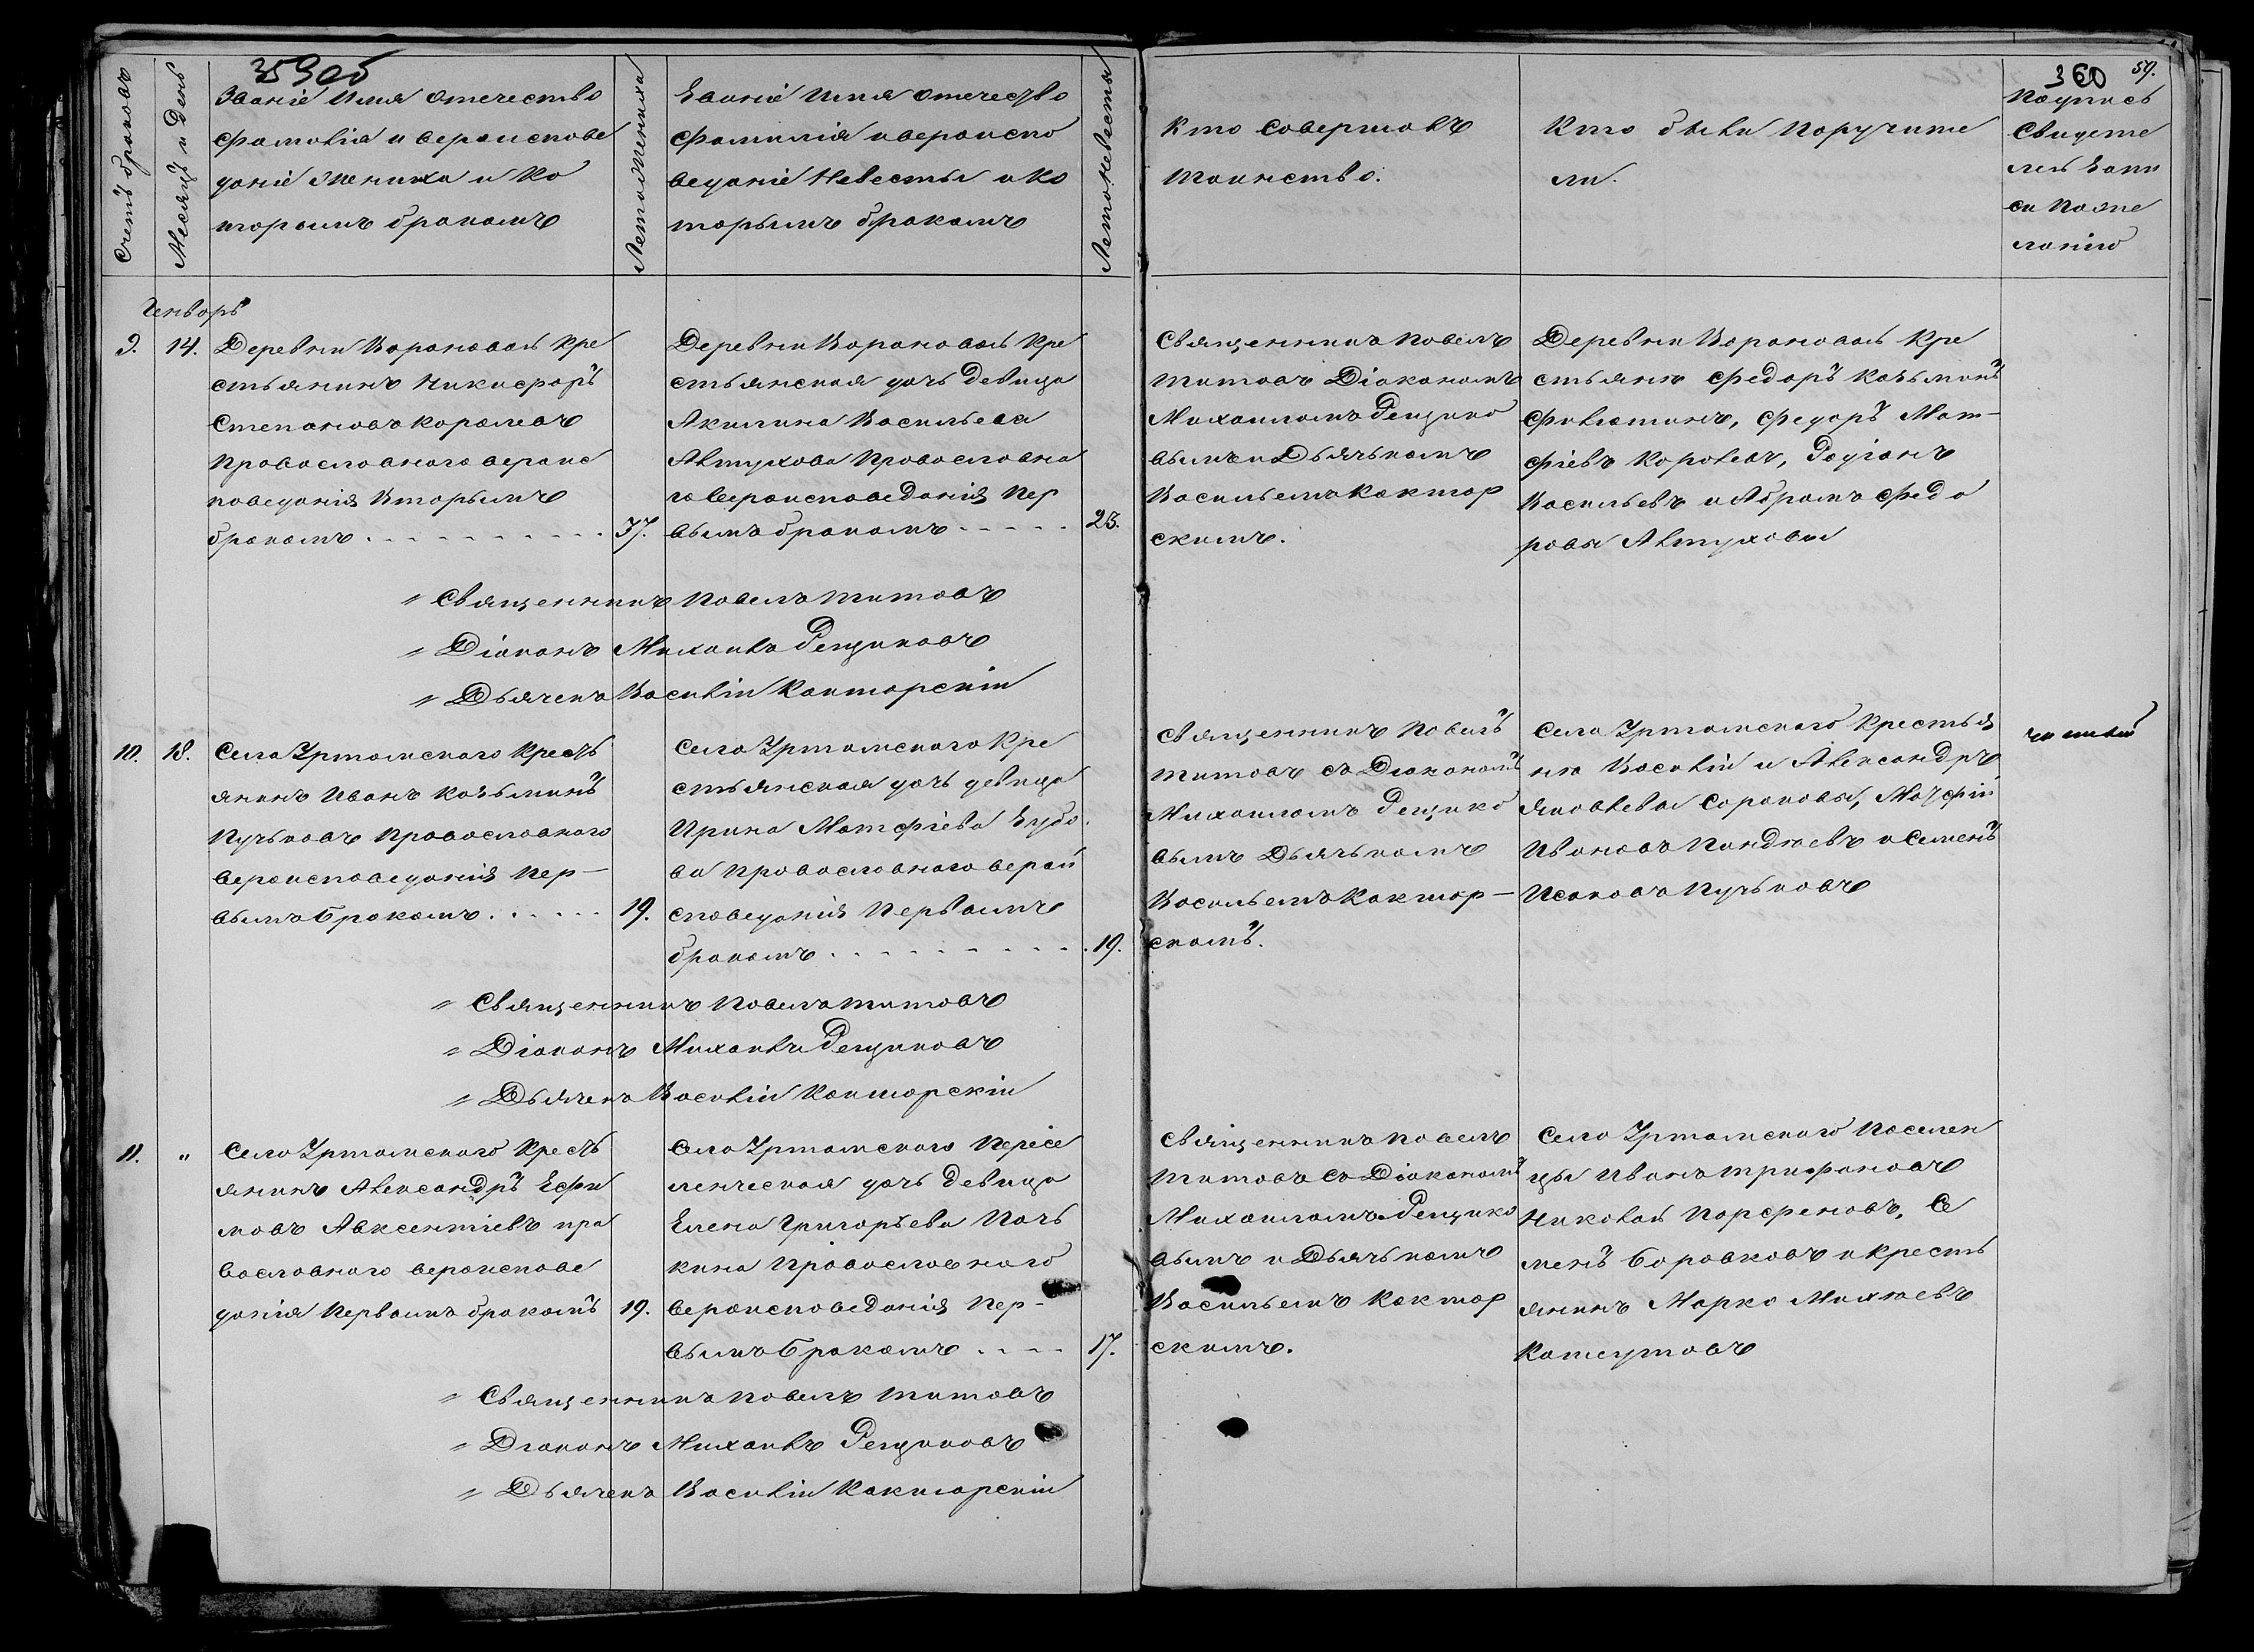 359об
360
59.
Счетъ браковъ
Месяцъ и День
Званіе Имя отечество
Фамилія и вероиспове
даніе жениха и Ко
торымъ бракомъ
Лета жениха
Званіе Имя отечество
Фамилія и вероиспо
веданіе Невесты и Ко
торымъ бракомъ
Лета невесты
Кто совершалъ
таинство.
Кто были Поручите
ли.
Подпись
Свидете
лей Запи
си По же
ланію
Генварь
9. 14.
Деревни Вороновой Кре
стьянинъ Никифоръ
Степановъ Королевъ
Православнаго вероис
поведанія Вторымъ
бракомъ
37.
Деревни Вороновой Кре
стьянская дочь Девица
Акилина Васильева
Автухова Православна
го Вероисповеданія Пер
вымъ бракомъ
23.
Священникъ Павелъ
Титовъ Діакономъ
Михаиломъ Рещико
вымъ и Дьячькомъ
Васильемъ Кантор
скимъ.
Деревни Вороновой Кре
стьяня Федоръ Козьминъ
Филатинъ, Федоръ Мат-
фіевъ Королевъ, Родіонъ
Васильевъ и Абрамъ Федо
ровы Автуховы
Священникъ Павелъ Титовъ
Діаконъ Михаилъ Рещиковъ
Дьячекъ Василій Канторскій
10. 18.
Села Уртамскаго Кресть
янинъ Иванъ Козьминъ
Пучьковъ Православнаго
вероисповеданія Пер-
вымъ Бракомъ
19.
Села Уртамскаго Кре
стьянская дочь девица
Ирина Матфіева Зубо
ва Православнаго верои
споведанія Первымъ
бракомъ
19.
Священникъ Павелъ
Титовъ съ Диакономъ
Михаиломъ Рещико
вымъ Дьячькомъ
Васильемъ Кантор-
скимъ.
Села Уртамскаго Крестья
ня Василій и Александръ
Яковлевы Сороковы, Матфій
Ивановъ Пиндюевъ и Семенъ
Исаковъ Пучьковъ
Священникъ Павелъ Титовъ
Діаконъ Михаилъ Рещиковъ
Дьячекъ Василій Канторскій
11. "
Села Уртамскаго Кресть
янинъ Александръ Ефи
мовъ Авксентіевъ пра
вославнаго вероиспове
данія Первымъ бракомъ
19.
Села Уртамскаго Пересе
ленческая дочь Девица
Елена Григорьева Почь
кина Православнаго
вероисповеданія Пер-
вымъ Бракомъ
17.
Священникъ Павелъ
Титовъ съ Діакономъ
Михаиломъ Рещико
вымъ и Дьячькомъ
Васильемъ Кантор
скимъ.
Села Уртамскаго Поселен
цы Иванъ Трифоновъ
Николай Парфеновъ, Се
менъ Боровковъ и Кресть
янинъ Марко Михеевъ
Священникъ Павелъ Титовъ
Диаконъ Михаилъ Рещиковъ
Дьячекъ Василій Канторскій